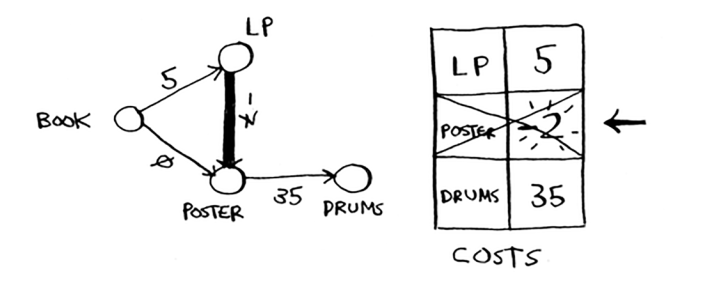 LP
5
BOOK
-7
0
POSTER
35
DRUMS
LP 5
POSTER -2
DRUMS 35
COSTS